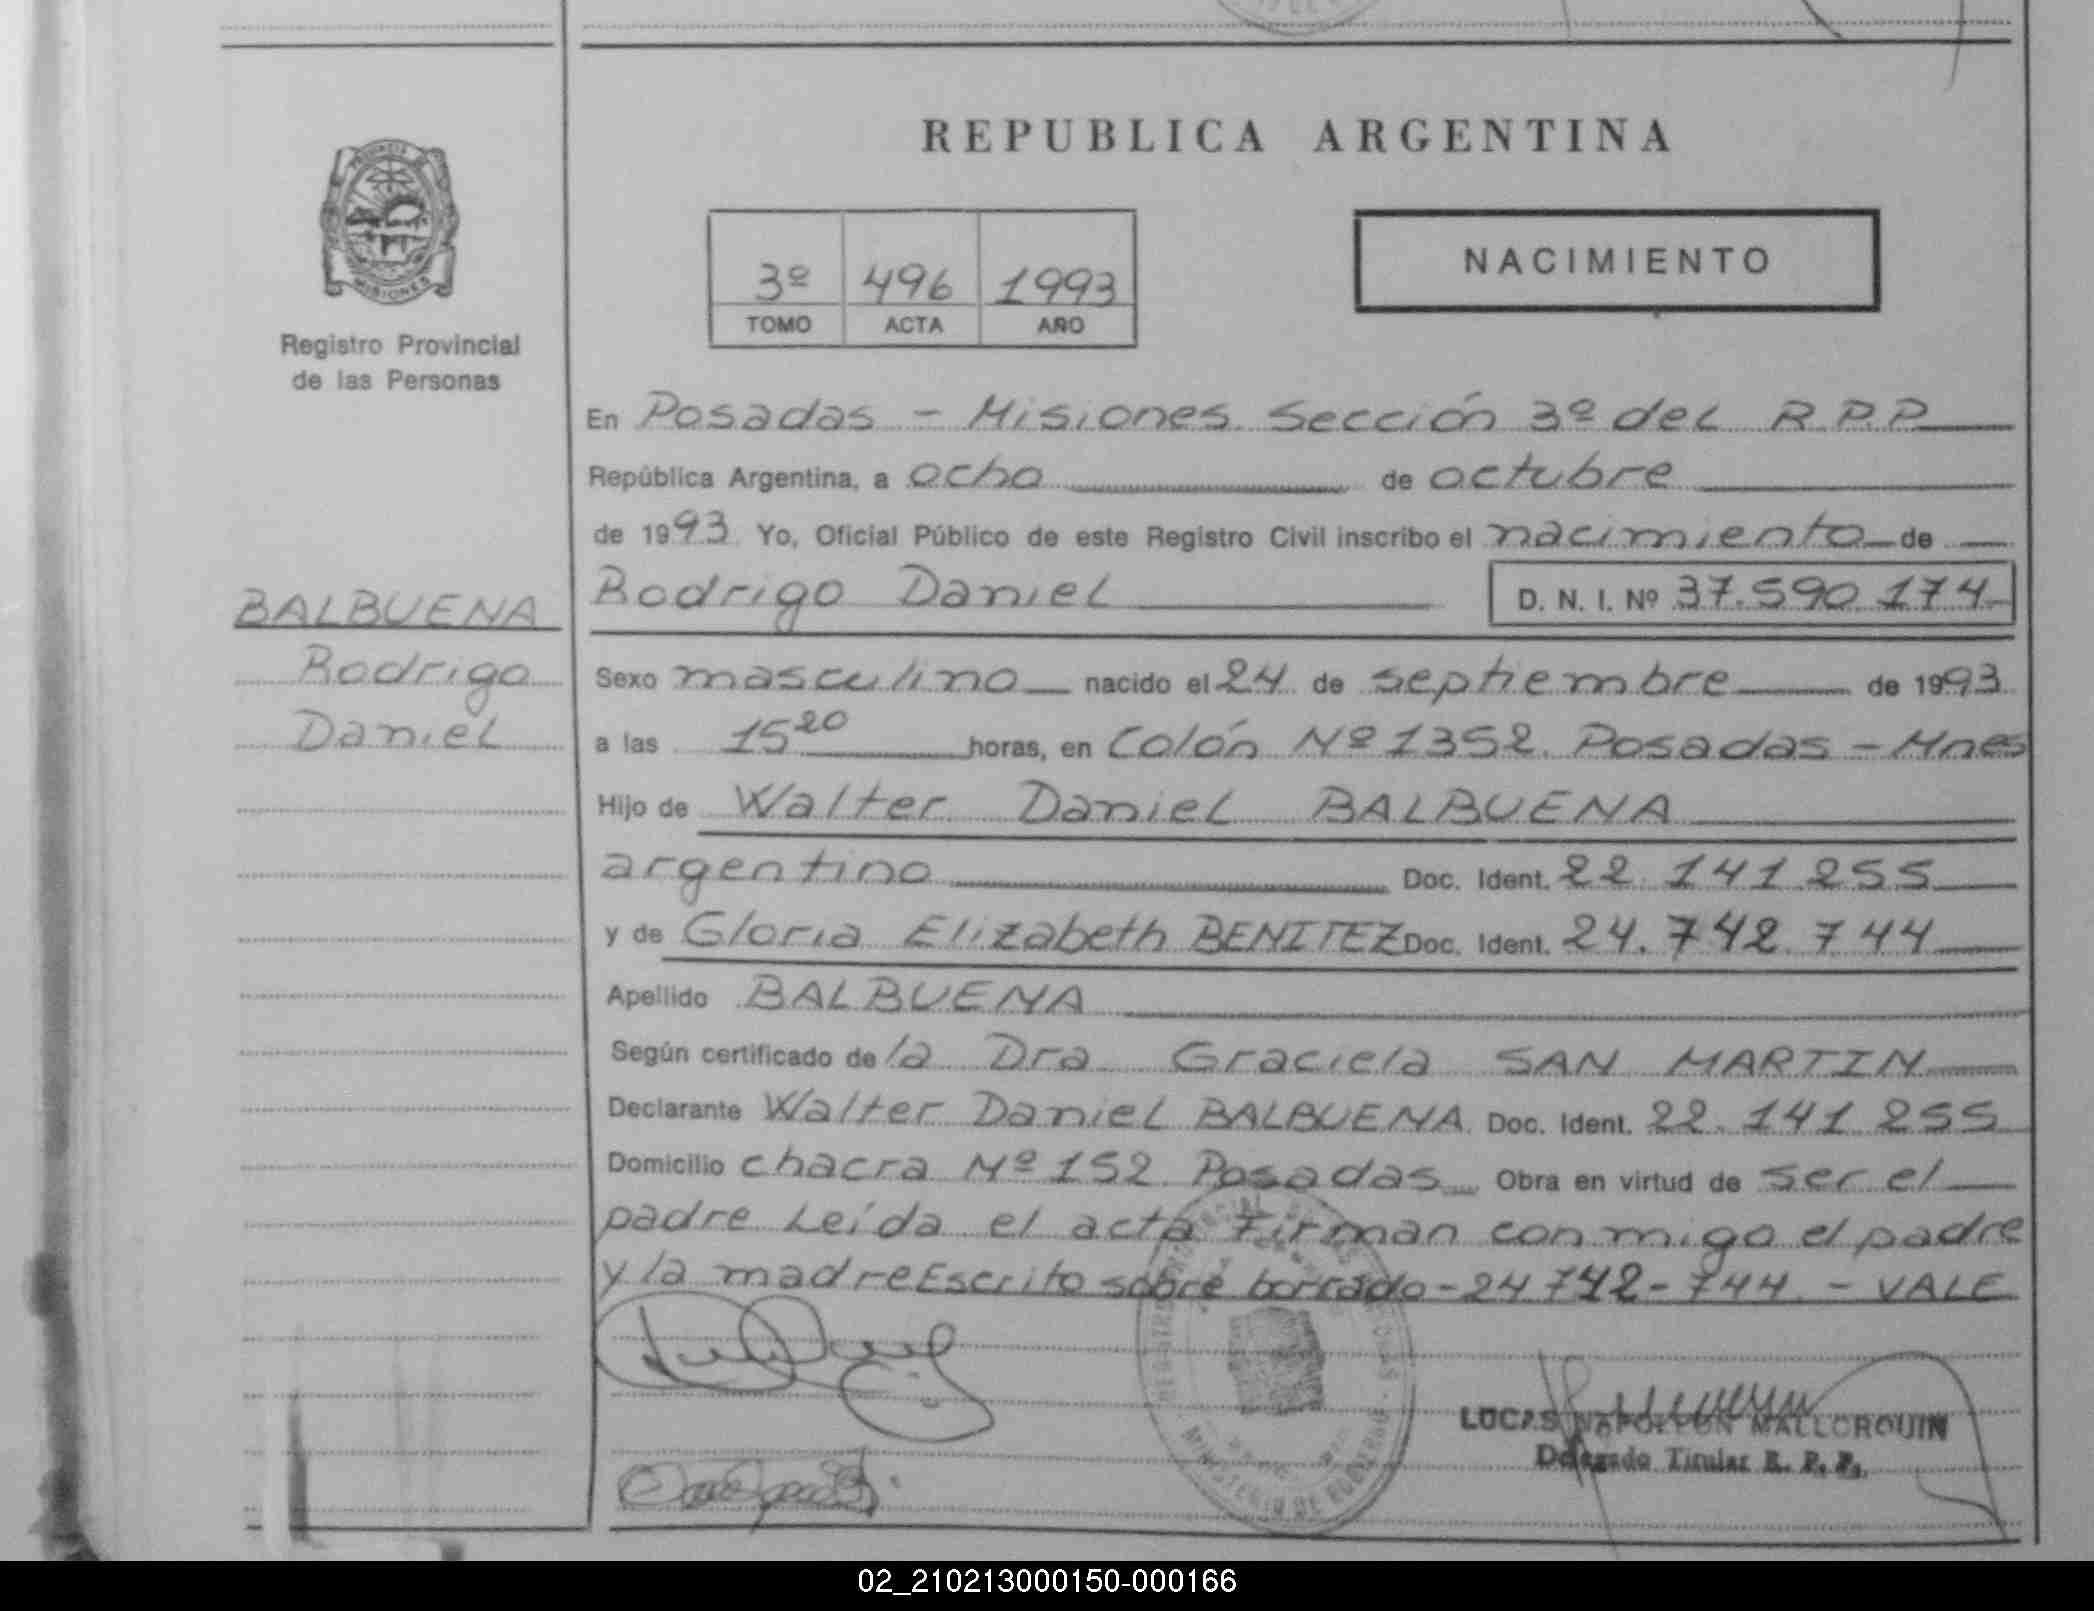 PROVINCIA DE
MISIONES
Registro Provincial
de las Personas
REPUBLICA ARGENTINA
3º 496 1993
TOMO ACTA AÑO
NACIMIENTO
En Posadas - Misiones Sección 3º del R.P.P
República Argentina, a ocho de octubre
de 1993 Yo, Oficial Público de este Registro Civil inscribo el nacimiento de
BALBUENA
Rodrigo
Daniel
Rodrigo Daniel D. N. I. Nº 37.590.174
Sexo masculino nacido el 24 de septiembre de 1993
a las 15 20 horas, en Colón Nº 1352 Posadas - Mnes
Hijo de Walter Daniel BALBUENA
argentino Doc. Ident. 22.141.255
y de Gloria Elizabeth BENITEZ Doc. Ident. 24.742.744
Apellido BALBUENA
Según certificado de la Dra Graciela SAN MARTIN
Declarante Walter Daniel BALBUENA Doc. Ident. 22.141.255
Domicilio chacra Nº 152 Posadas Obra en virtud de ser el
padre Leída el acta Firman conmigo el padre
y la madre Escrito sobre borrado - 24 742 - 744. - VALE
MINISTERIO DE GOBIERNO
LUCAS NAPOLEON MALLORQUIN
Delegado Titular R. P. P.
02_210213000150-000166